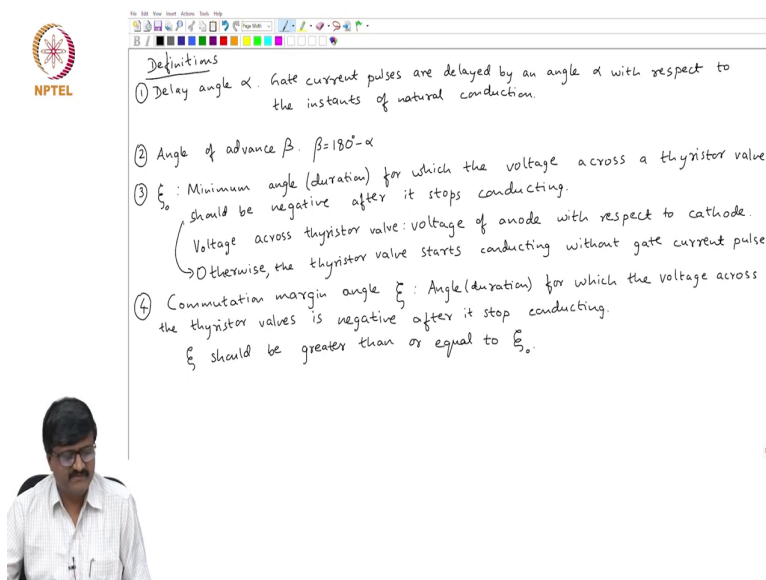 File Edit View Insert Actions Tools Help
Page Width
B I
NPTEL
Definitions
① Delay angle α. Gate current pulses are delayed by an angle α with respect to
the instants of natural conduction.
② Angle of advance β. β=180°-α
③ ξ₀: Minimum angle (duration) for which the voltage across a thyristor valve
should be negative after it stops conducting.
Voltage across thyristor valve: voltage of anode with respect to cathode.
Otherwise, the thyristor valve starts conducting without gate current pulse
④ Commutation margin angle ξ: Angle (duration) for which the voltage across
the thyristor valves is negative after it stop conducting.
ξ should be greater than or equal to ξ₀.